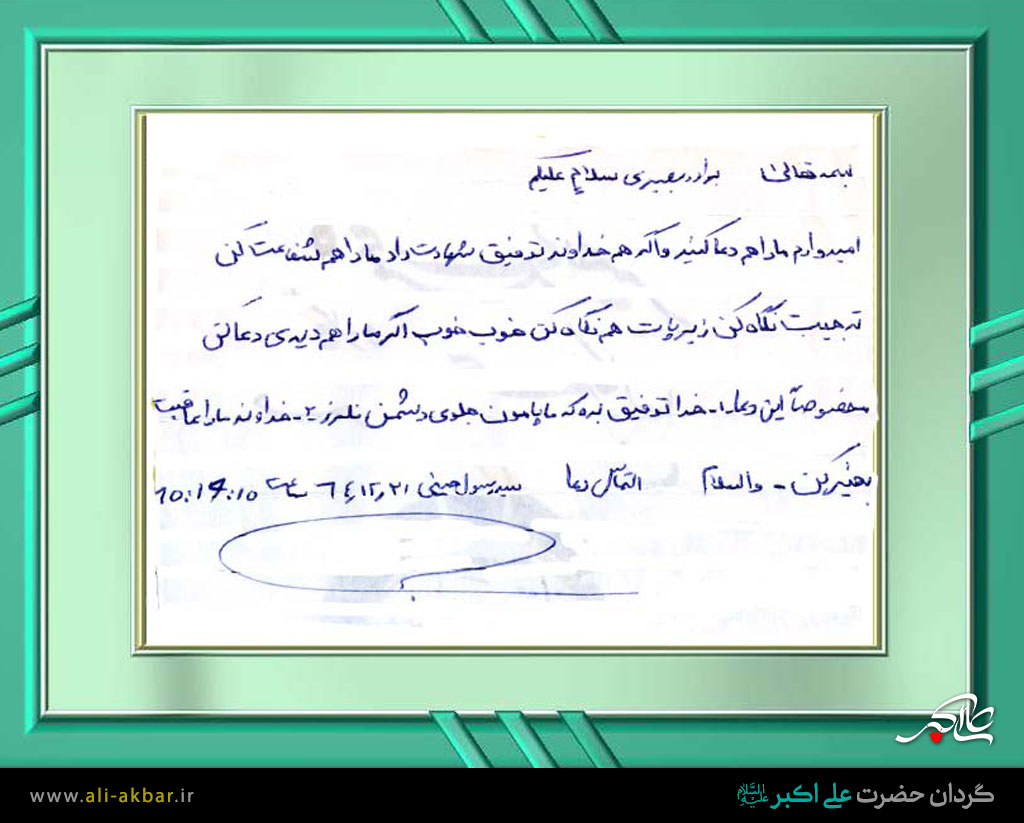 بسمه تعالی برادر بصیری سلام علیکم
امیدوارم ما را هم دعا کنید و اگر هم خداوند توفیق شهادت داد ما را هم شفاعت کن
ته جیبت نگاه کن زیر پات هم نگاه کن خوب خوب اگر ما را هم دیدی دعا کن
مخصوصاً این دعا. ۱- خدا توفیق بده که ما پامون جلوی دشمن نلرزد ۲- خداوند ما را عاقبت
بخیر کن - والسلام التماس دعا سید رسول حسینی ۶۴,۱۲,۲۱ ساعت 10:14:10
علی اکبر
گردان حضرت علی اکبر علیه السلام
www.ali-akbar.ir